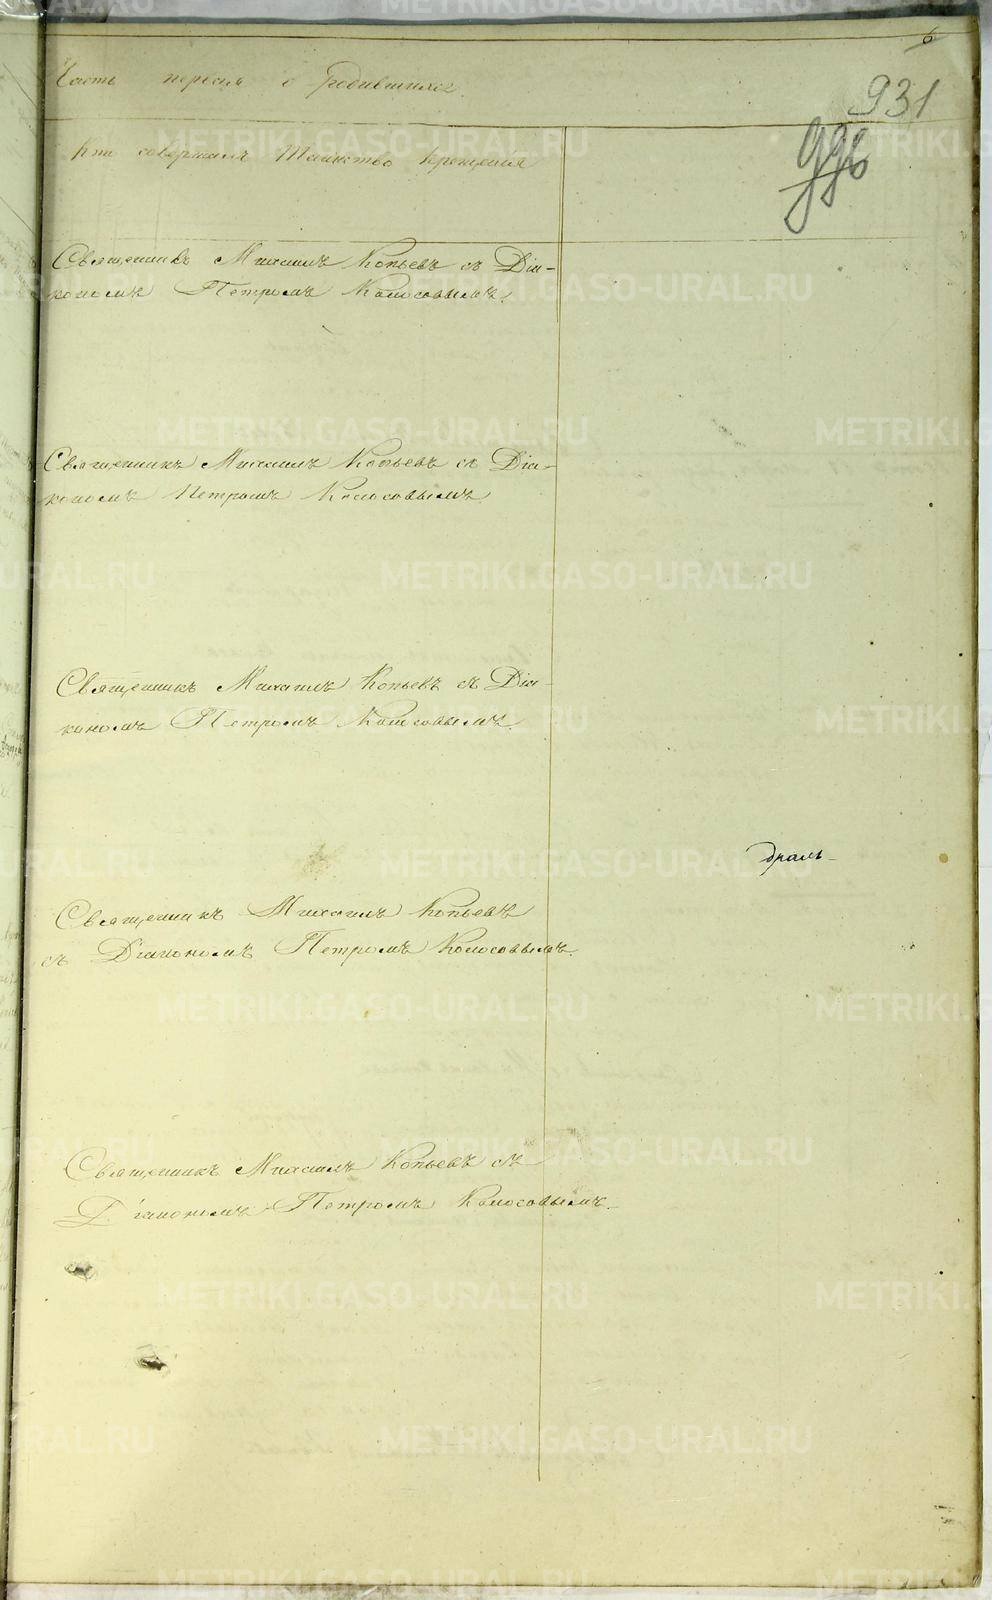 6
Часть первая о родившихся.
931
996
Кто совершалъ Таинство крещенія
Священникъ Михаилъ Копьевъ съ Діа-
кономъ Петромъ Колосовымъ.
Священникъ Михаилъ Копьевъ съ Діа-
кономъ Петромъ Колосовымъ.
Священникъ Михаилъ Копьевъ съ Діа-
кономъ Петромъ Колосовымъ.
Священникъ Михаилъ Копьевъ
съ Діакономъ Петромъ Колосовымъ.
Священникъ Михаилъ Копьевъ съ
Діакономъ Петромъ Колосовымъ.
METRIKI.GASO-URAL.RU